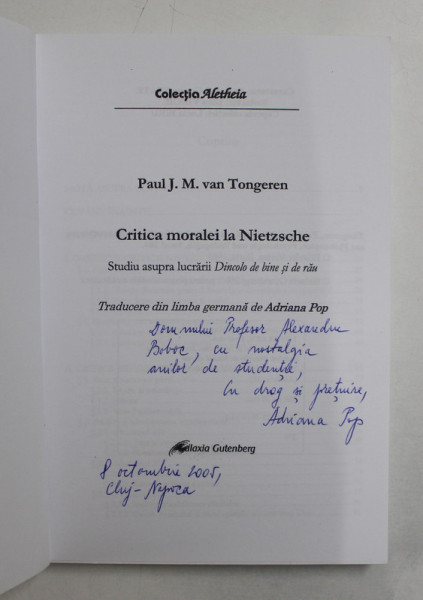 Colecția Aletheia
Paul J. M. van Tongeren
Critica moralei la Nietzsche
Studiu asupra lucrării Dincolo de bine și de rău
Traducere din limba germană de Adriana Pop
Domnului Profesor Alexandru
Boboc, cu nostalgia
anilor de studenție,
Cu drag și prețuire,
Adriana Pop
Galaxia Gutenberg
8 octombrie 2005,
Cluj-Napoca